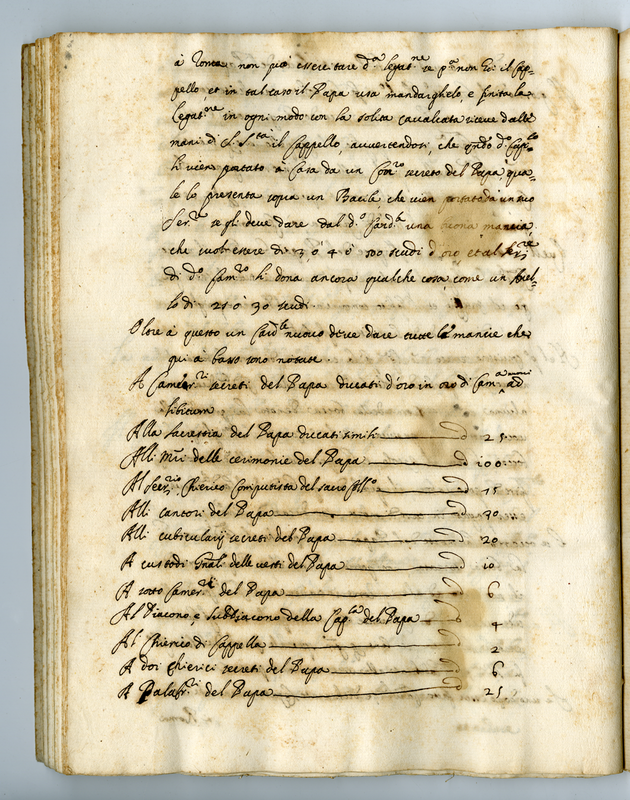 à Roma non può essercitare d.ª legat.ne se p.ª non hà il Cap-
pello, et in tal caso il Papa usa mandarghelo, e finita la
legat.ne in ogni modo con la solita cavalcata riceve dalle
mani di S. S.tà il Cappello, avvertendosi, che qndo d.º Capp.lo
li vien portato à Casa da un Cam.ro secreto del Papa, qua-
le lo presenta sopra un Bacile, che vien portato da un suo
Ser.re se gli deve dare dal d.º Card.le una buona mancia
che suol essere di 3 ò 4 ò 500 scudi d'oro et al Ser.re
di d.º Cam.ro li dona ancora qualche cosa come un Anel-
lo di 25 ò 30 scudi
Oltre à questo un Card.le nuovo deve dare tutte le mancie che
qui à basso sono notate.
A Camer.ri secreti del Papa ducati d'oro in oro di Cam.ª ad
libitum
Alla Sacrestia del Papa ducati simili 25
Alli Mri delle cerimonie del Papa 100
Al Secr.rio, Chierico Computista del sacro Coll.º 15
Alli cantori del Papa 30
Alli cubicularij secreti del Papa 20
A custodi Gnali delle vesti del Papa 10
A sotto Camer.ri del Papa 6
Al Diacono, e Subdiacono della Cap.la del Papa 4
Al Chierico di Cappella 2
A doi chierici secreti del Papa 6
A Palafr.ri del Papa 25